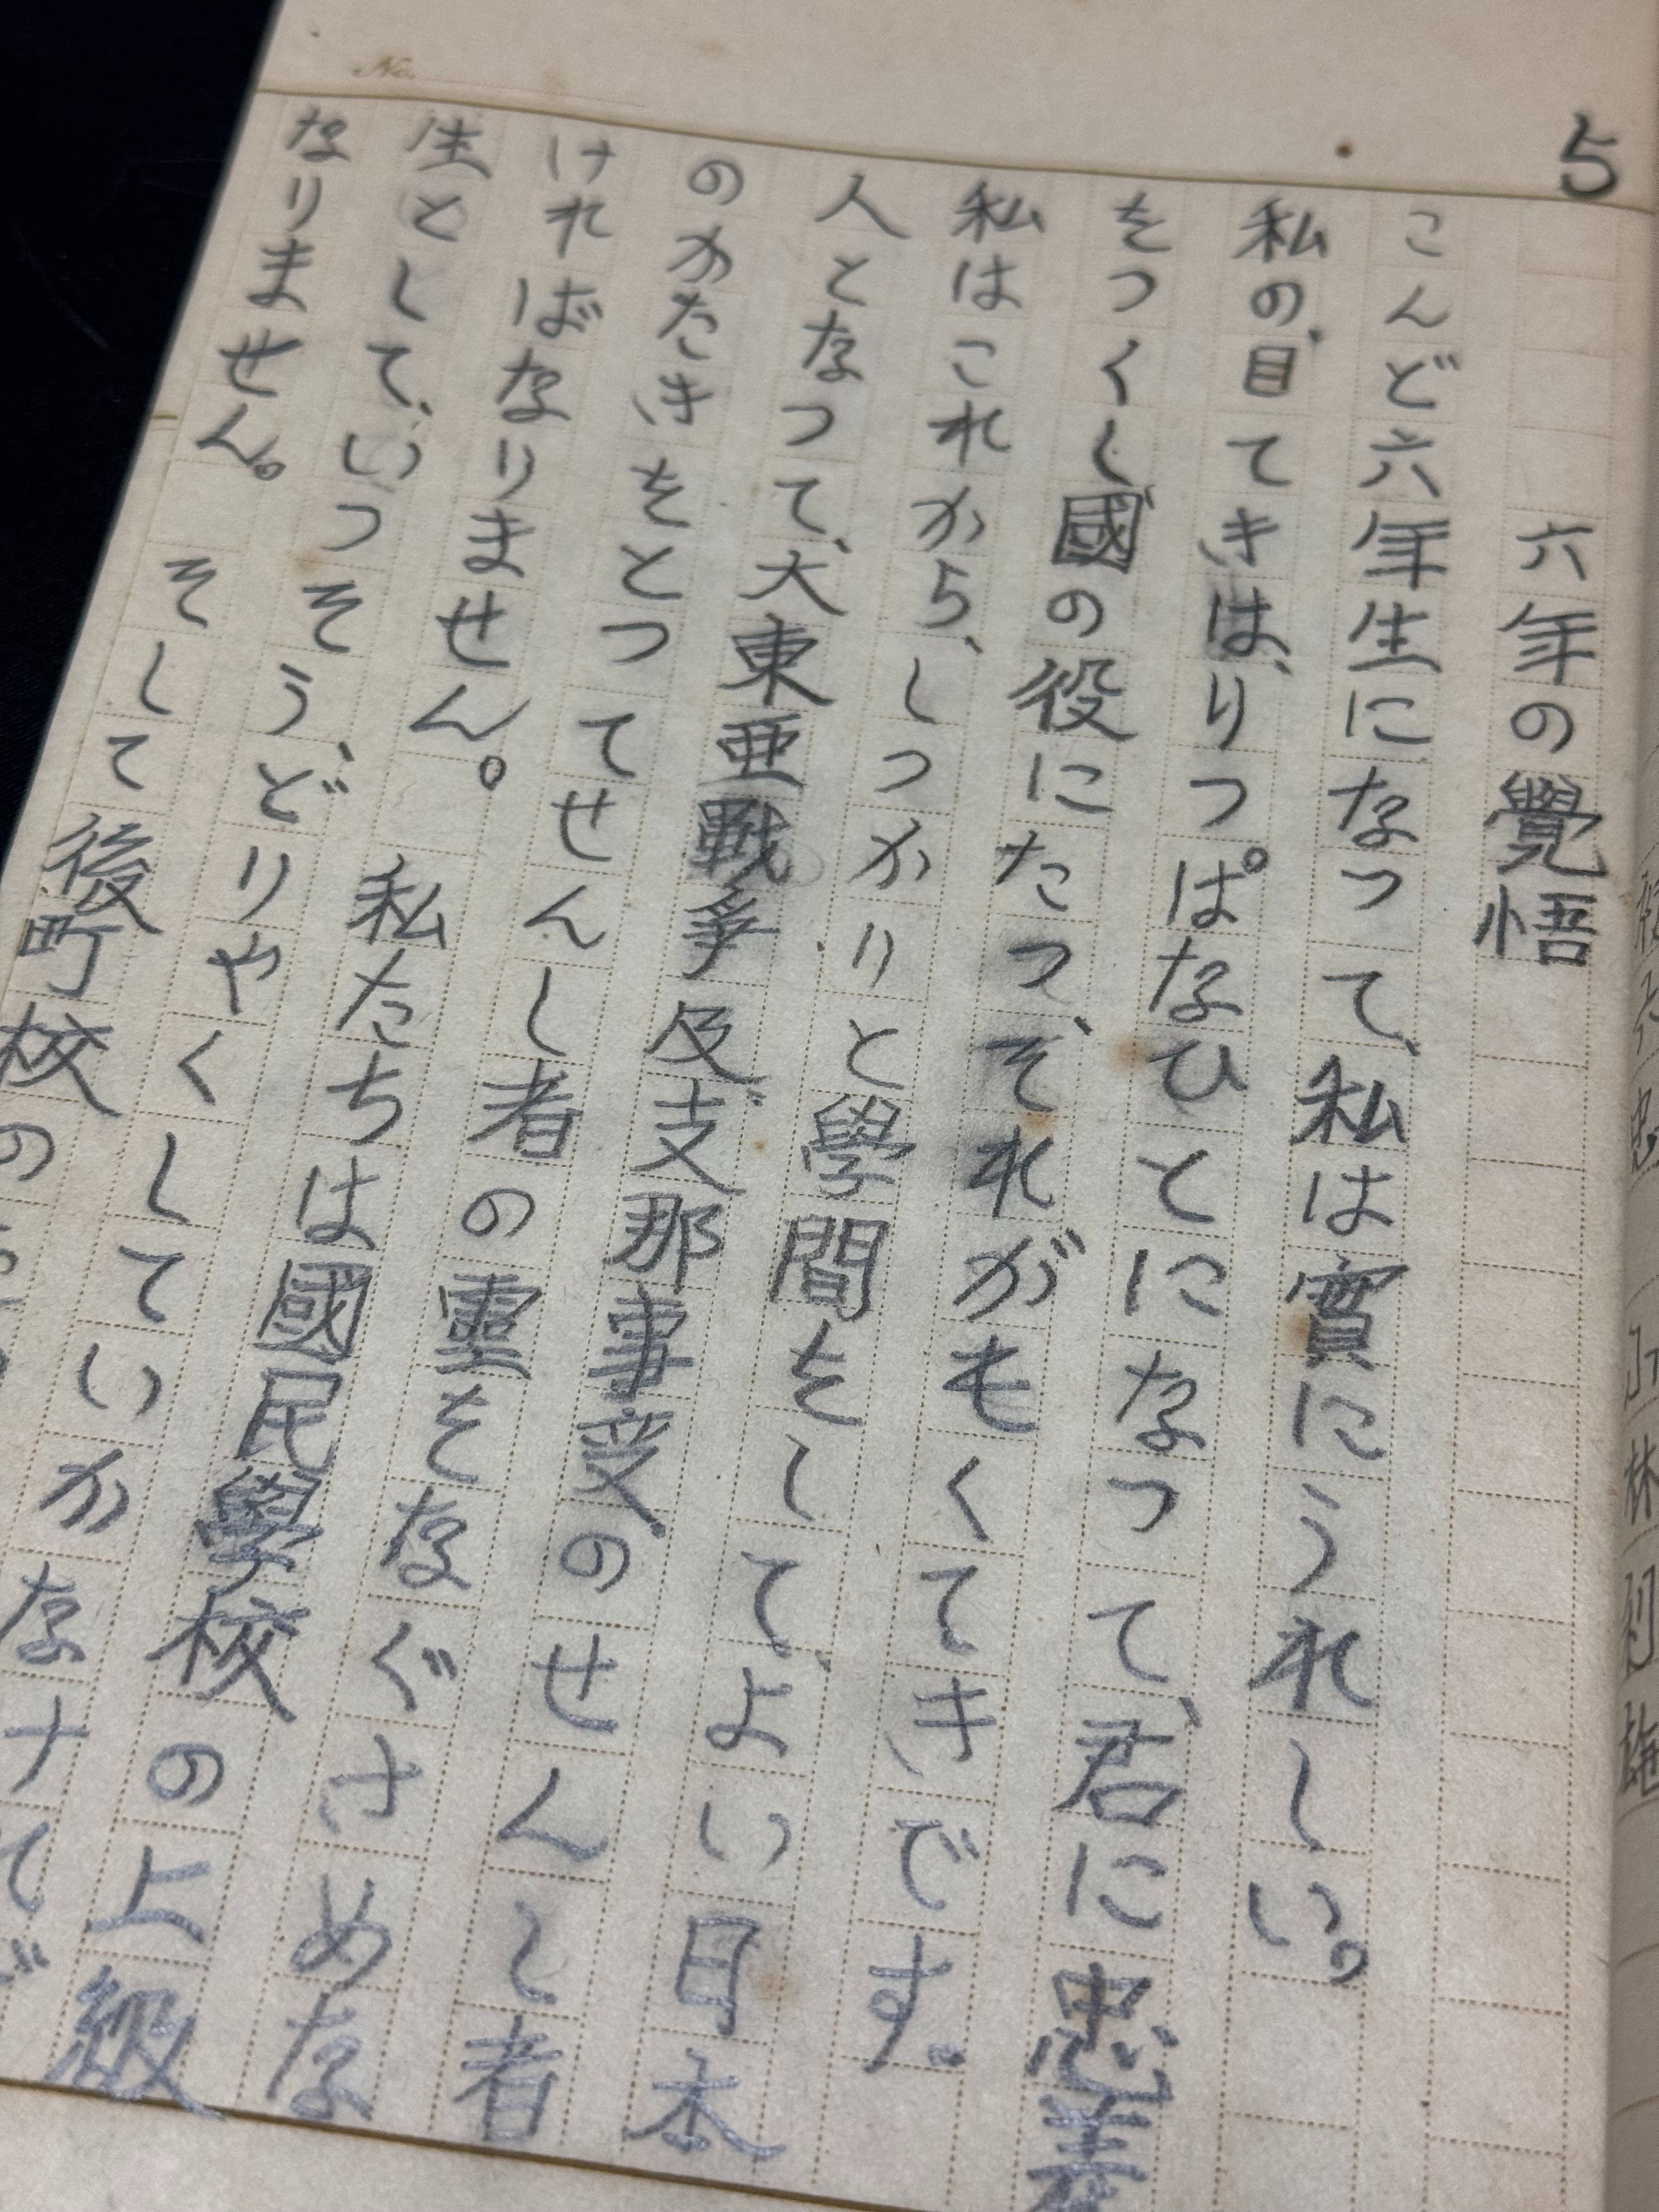 5
六年の覺悟
こんど六年生になつて、私は實にうれしい。
私の、目てきは、りつぱなひとになつて、君に忠義
をつくし國の役にたつ、それがもくてきです。
私はこれから、しつかりと學間をして、よい日本
人となつて、大東亜戰爭及支那事変のせんし者
のかたきをとつてせんし者の霊をなぐさめな
ければなりません。 私たちは國民學校の上級
生として、いつそう、どりやくしていかな
なりません。 そして後町校の
No.